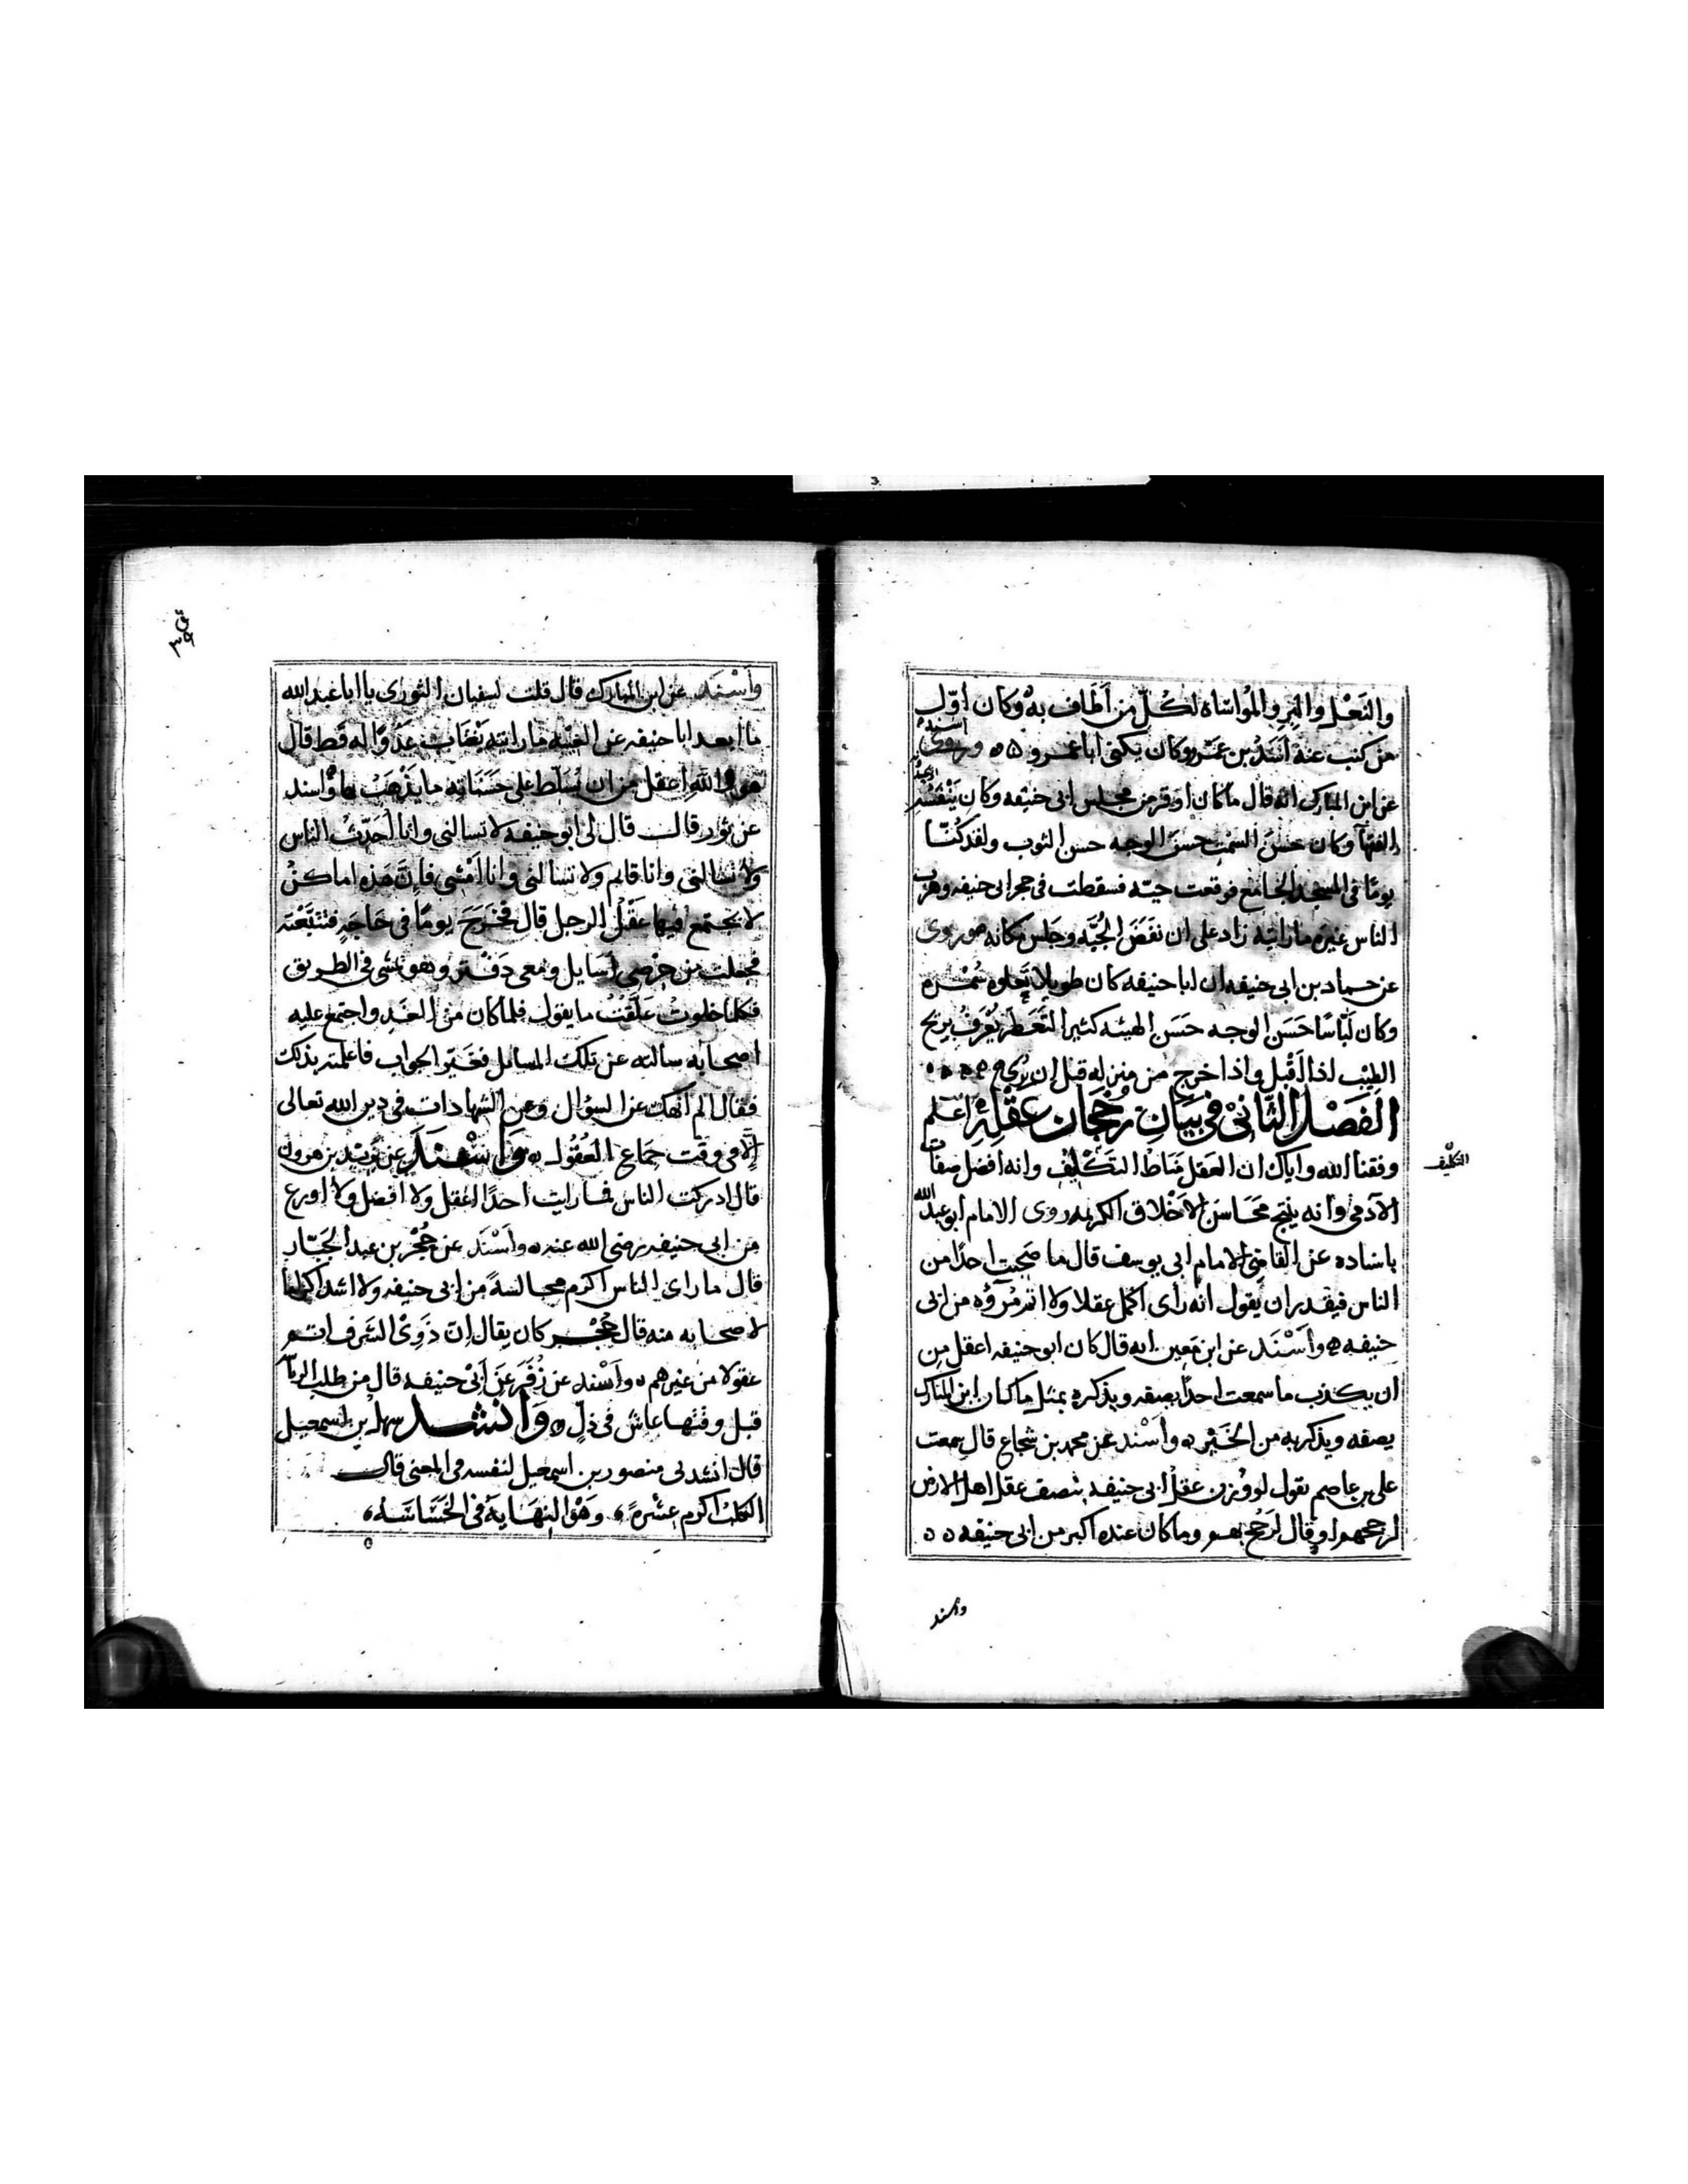 والنعل والبر والمواساه لكل من أطاف به وكان اول
من كتب عنه اسد بن عمرو وكان يكنى ابا عمرو ه ه وروى
اسند
عن ابن المبارك انه قال ما كان اوقر من مجلس ابى حنيفه وكان
الفقها وكان حسن السمت حسن الوجه حسن الثوب ولقد كنا
يوما فى المسجد الجامع فوقعت حيه فسقطت فى حجر ابى حنيفه وهرب
الناس غيره ما رايته زاد على ان نفض الجبه وجلس مكانه ه وروى
عن حماد بن ابى حنيفه ان ابا حنيفه كان طويلا تعلوه سمره
وكان لباسا حسن الوجه حسن الهيئه كثير التعطر يعرف بريح
الطيب اذا اقبل واذا خرج من منزله قبل ان يرى ه ه ه ه ه
الفصل الثانى فى بيان رجحان عقله اعلم
وفقنا الله واياك ان العقل مناط التكليف وانه افضل صفات
التكليف
الآدمى وانه ينتج محاسن الاخلاق الكريمه روى الامام ابو عبد الله
باسناده عن القاضى الامام ابى يوسف قال ما صحبت احدا من
الناس فيقدر ان يقول انه رأى اكمل عقلا ولا اتم مروه من ابى
حنيفه ه واسند عن ابن معين انه قال كان ابو حنيفه اعقل من
ان يكذب ما سمعت احدا يصفه ويذكره بمثل ما كان ابن المبارك
يصفه ويذكر به من الخير ه واسند عن محمد بن شجاع قال سمعت
على بن عاصم يقول لو وزن عقل ابى حنيفه بنصف عقل اهل الارض
لرجحهم او قال لرجح بهم وما كان عنده اكبر من ابى حنيفه ه ه
واسند
٣٩
واسند عن ابن المبارك قال قلت لسفيان الثورى يا ابا عبد الله
ما ابعد ابا حنيفه عن الغيبه ما رايته يغتاب عدوا له قط قال
هو والله اعقل من ان يسلط على حسناته ما يذهب بها واسند
عن ثور قال قال لى ابو حنيفه لا تسالنى وانا احدث الناس
ولا تسالنى وانا قايم ولا تسالنى وانا امشى فان هذه اماكن
لا يجتمع فيها عقل الرجل قال فخرج يوما فى حاجه فتتبعته
فجعلت من حرصى اسايل ومعى دفتر وهو يمشى فى الطريق
فكلما خلوت علقت ما يقول فلما كان من الغد واجتمع عليه
اصحابه سالته عن تلك المسايل فغير الجواب فاعلمته بذلك
فقال الم انهك عن السؤال وعن الشهادات فى دين الله تعالى
الا فى وقت جماع العقول ه واسند عن يزيد بن هرون
قال ادركت الناس فما رايت احدا اعقل ولا افضل ولا اورع
من ابى حنيفه رضى الله عنه ه واسند عن حجر بن عبد الجبار
قال ما راى الناس اكرم مجالسة من ابى حنيفه ولا اشد اكراما
لاصحابه منه قال حجر كان يقال ان ذوى الشرف اتم
عقولا من غيرهم ه واسند عن زفر عن ابى حنيفه قال من طلب الرياسه
قبل وقتها عاش فى ذل ه وانشد سهل بن اسمعيل
قال انشدنى منصور بن اسمعيل لنفسه فى المعنى قال
الكلب اكرم عشرة، وهو النهاية فى الخساسه،